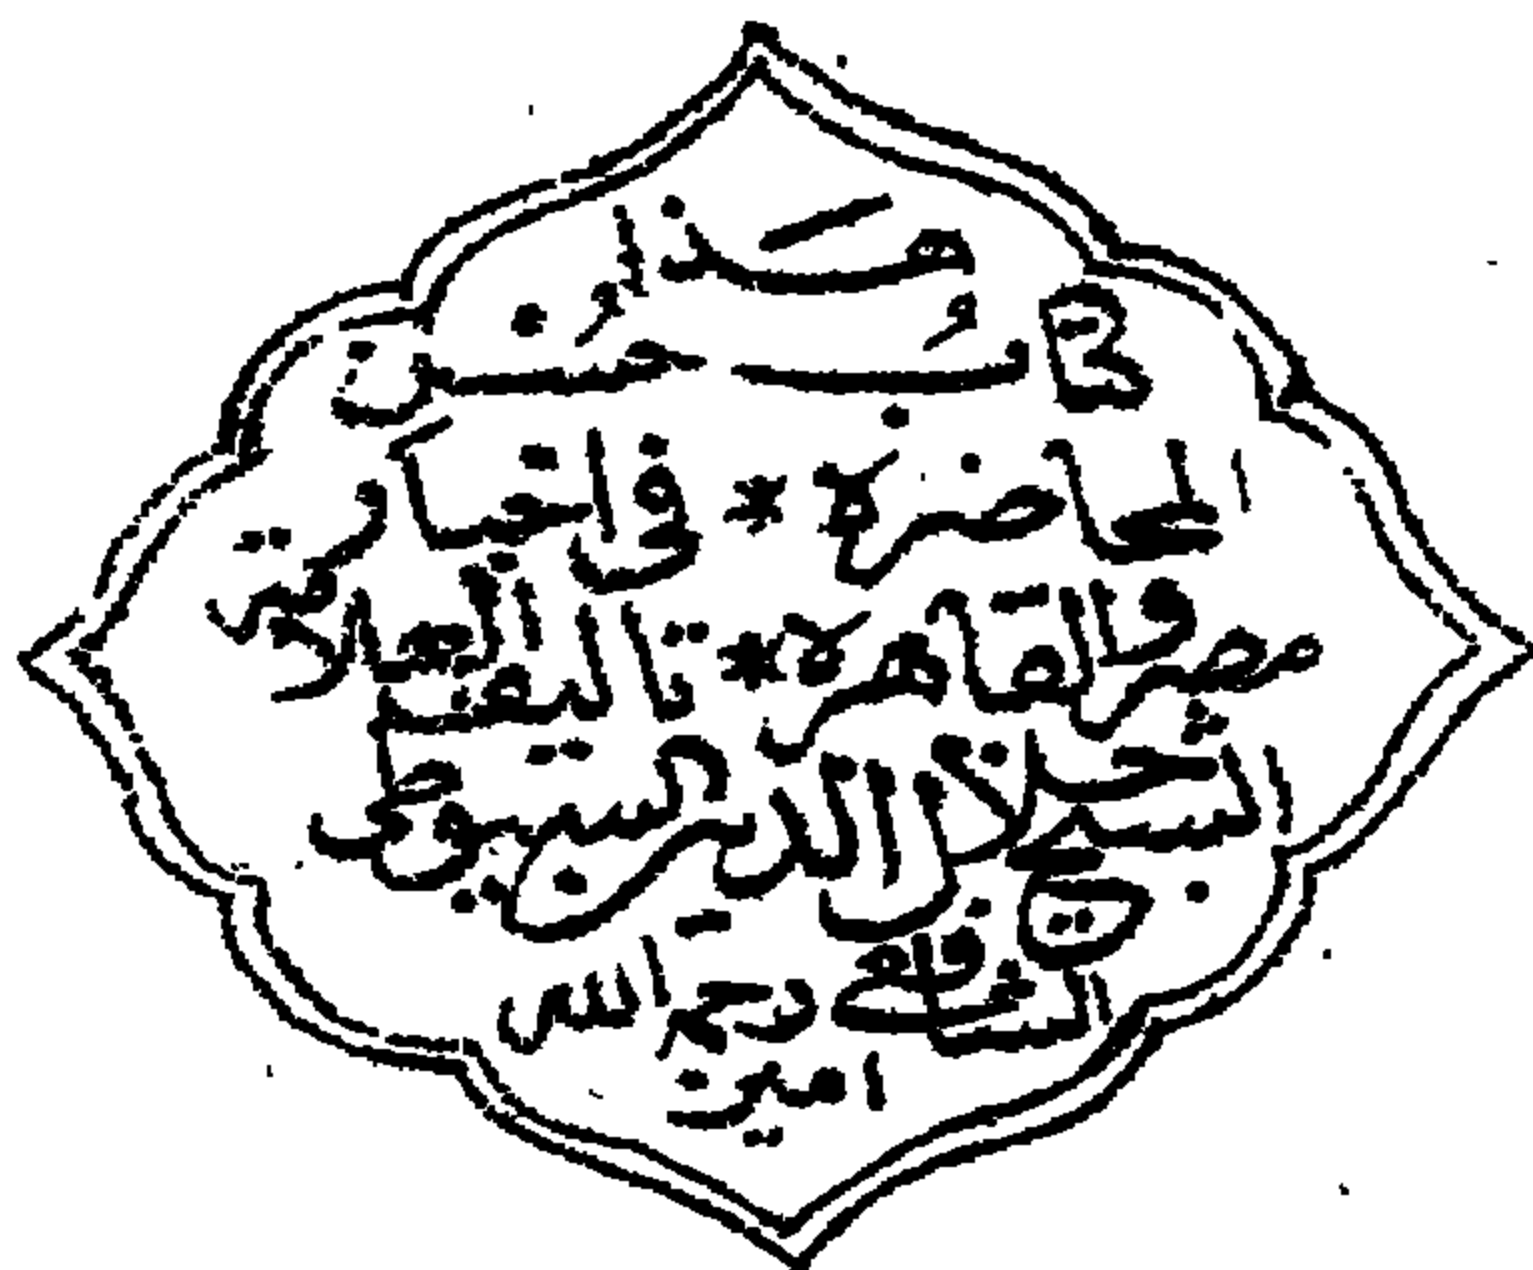 هَذا
كتابُ حُسْنِ
المحاضرة * في اخبار
مصر والقاهرة * تاليف العلامة
الشيخ جلال الدين السيوطي
الشافعي رحمه الله
امين